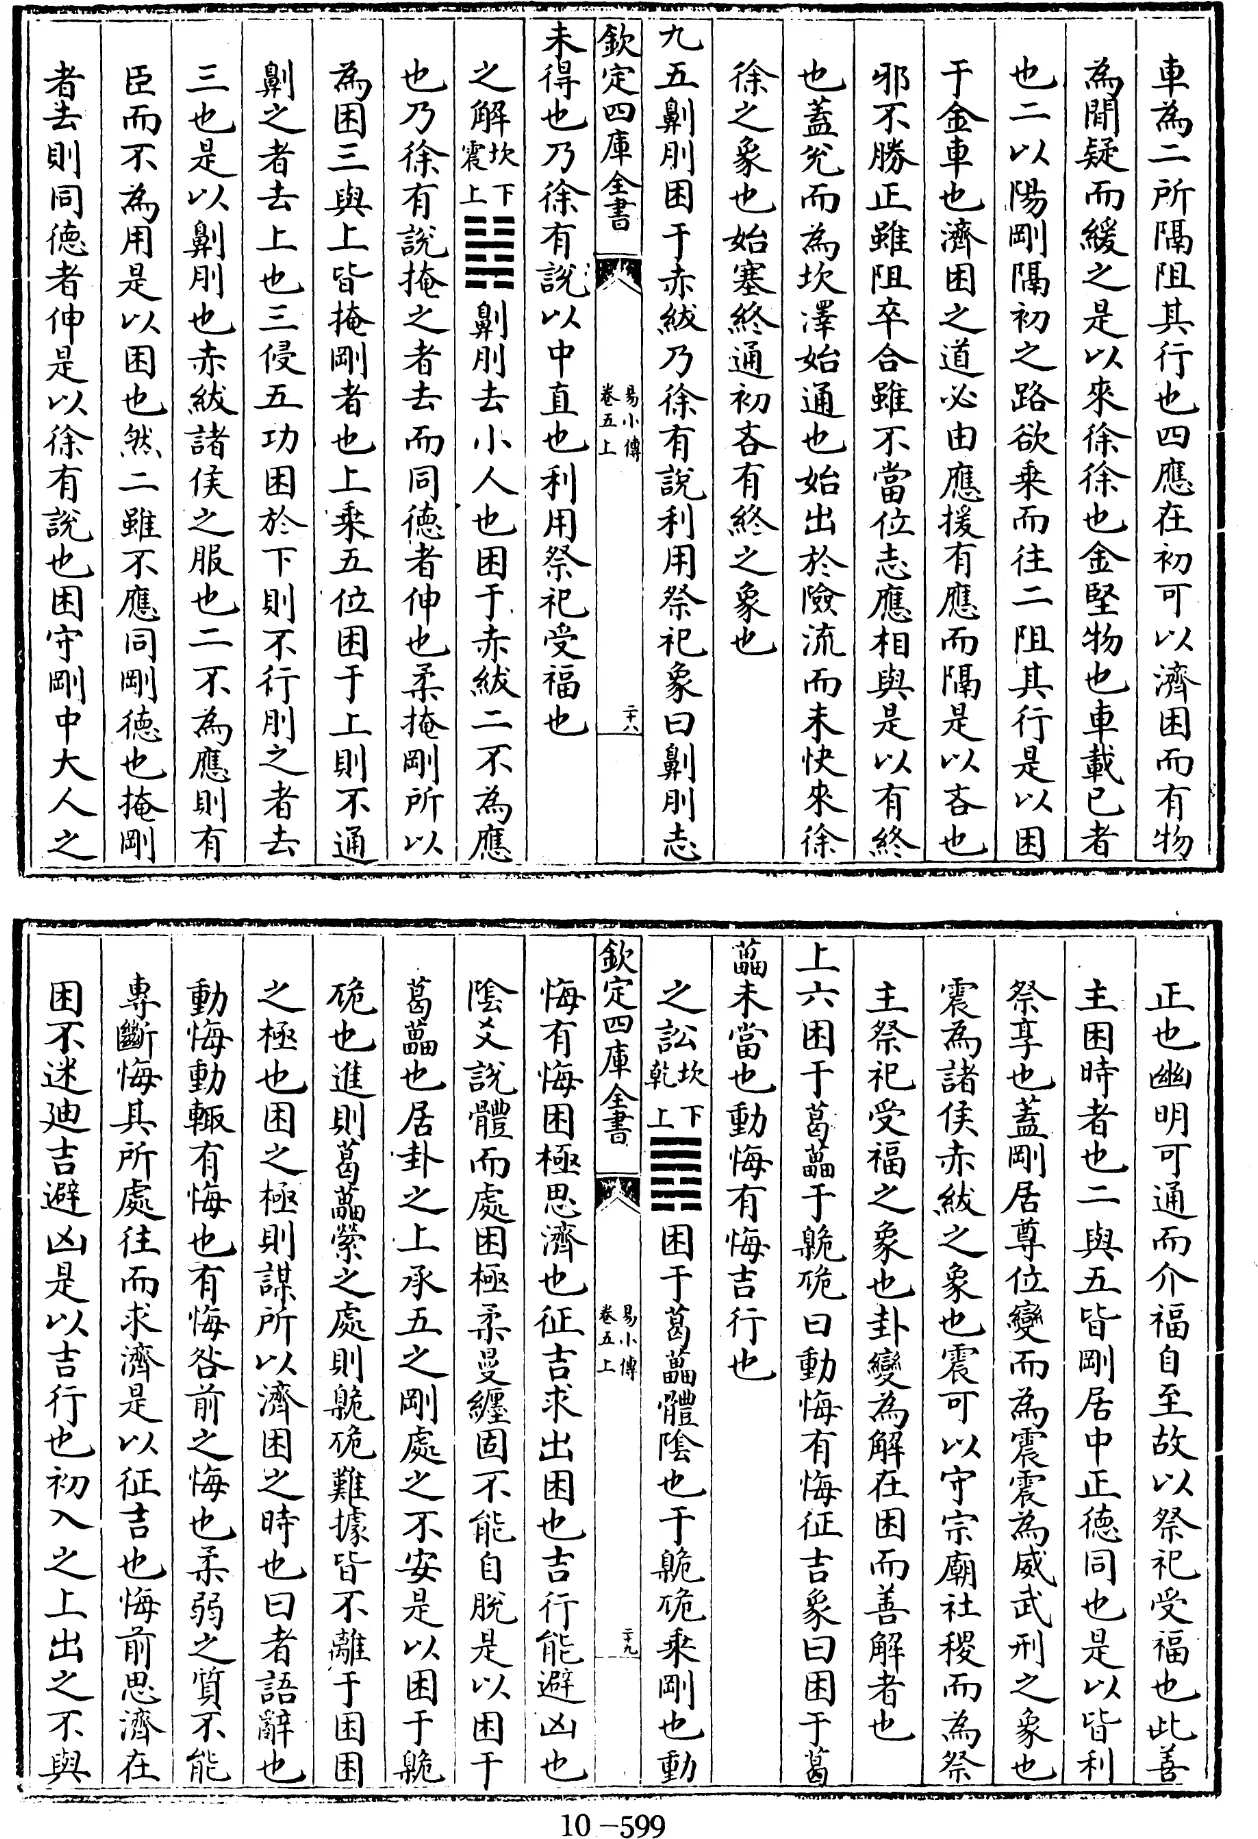 車為二所隔阻其行也四應在初可以濟困而有物
為間疑而緩之是以來徐徐也金堅物也車載已者
也二以陽剛隔初之路欲乗而往二阻其行是以困
于金車也濟困之道必由應援有應而隔是以吝也
邪不勝正雖阻卒合雖不當位志應相與是以有終
也蓋兊而為坎澤始通也始出於險流而未快來徐
徐之象也始塞終通初吝有終之象也
九五劓刖困于赤紱乃徐有說利用祭祀象曰劓刖志
欽定四庫全書
易小傳
卷五上
二十八
未得也乃徐有說以中直也利用祭祀受福也
之解坎下震上䷧劓刖去小人也困于赤紱二不為應
也乃徐有說掩之者去而同德者伸也柔掩剛所以
為困三與上皆掩剛者也上乗五位困于上則不通
劓之者去上也三侵五功困於下則不行刖之者去
三也是以劓刖也赤紱諸侯之服也二不為應則有
臣而不為用是以困也然二雖不應同剛德也掩剛
者去則同德者伸是以徐有說也困守剛中大人之
正也幽明可通而介福自至故以祭祀受福也此善
主困時者也二與五皆剛居中正德同也是以皆利
祭享也蓋剛居尊位變而為震震為威武刑之象也
震為諸侯赤紱之象也震可以守宗廟社稷而為祭
主祭祀受福之象也卦變為解在困而善解者也
上六困于葛藟于臲卼曰動悔有悔征吉象曰困于葛
藟未當也動悔有悔吉行也
之訟坎下乾上䷅困于葛藟體陰也于臲卼乗剛也動
欽定四庫全書
易小傳
卷五上
二十九
悔有悔困極思濟也征吉求出困也吉行能避凶也
陰爻說體而處困極柔曼纏固不能自脫是以困于
葛藟也居卦之上承五之剛處之不安是以困于臲
卼也進則葛藟縈之處則臲卼難據皆不離于困困
之極也困之極則謀所以濟困之時也曰者語辭也
動悔動輒有悔也有悔咎前之悔也柔弱之質不能
專斷悔其所處往而求濟是以征吉也悔前思濟在
困不迷廸吉避凶是以吉行也初入之上出之不與
10-599